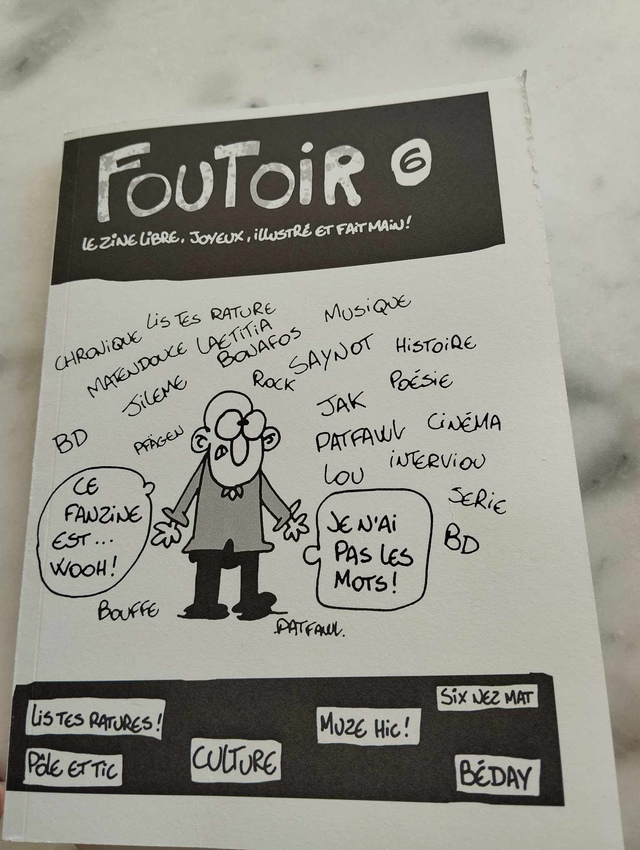 FOUTOIR 6
LE ZINE LIBRE, JOYEUX, ILLUSTRÉ ET FAIT MAIN!
CHRONIQUE LISTES RATURE MUSIQUE
MATENDOUCE LAETITIA
BONAFOS SAYNOT HISTOIRE
JILEME ROCK POÉSIE
JAK
BD PFÄGEN PATFAWL CINÉMA
LOU INTERVIOU
SERIE
BD
CE
FANZINE
EST...
WOOH!
JE N'AI
PAS LES
MOTS!
BOUFFE
PATFAWL.
LIS TES RATURES!
MUZE HIC!
SIX NEZ MAT
PÔLE ET TIC
CULTURE
BÉDAY